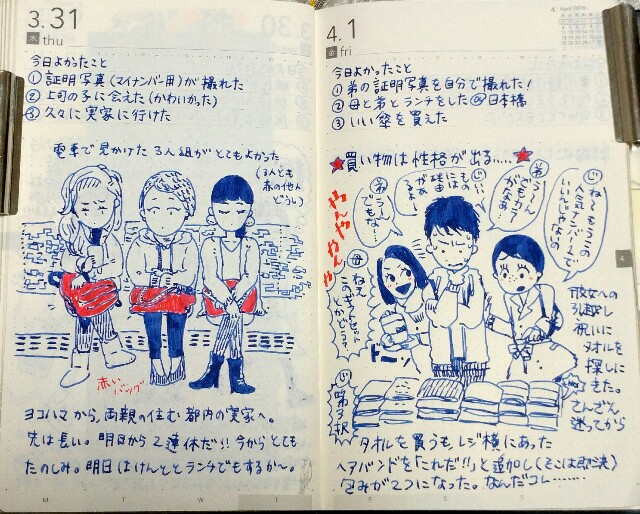 3.31
木 thu
今日よかったこと
① 証明写真(マイナンバー用)が撮れた
② 上司の子に会えた(かわいかった)
③ 久々に実家に行けた
電車で見かけた3人組がとてもよかった
(3人とも
赤の他人
どうし)
赤いバッグ
ヨコハマから、両親の住む都内の実家へ。
先は長い。明日から2連休だ!!今からとても
たのしみ。明日はけんととランチでもするか〜。
M T W T
4 April 2016
4.1
金 fri
今日よかったこと
① 弟の証明写真を自分で撮れた!
② 母と弟とランチをした@日本橋
③ いい傘を買えた
★買い物は性格が出る.....★
やんややんや
弟 う〜ん
でもな…
ものには
理由が
あるよ
弟 う〜〜ん
でもなァ?
じ ねぇもうこの
人気ナンバー1で
いいんじゃないの
母 ねえ
こっち
とか
どう?
ドーン
じ 第3択
彼女への
引越し
祝いに
タオルを
探しに
きた。
さんざん
迷ってから
タオルを買うもレジ横にあった
ヘアバンドを「これだ!!」と追加し(そこは即決)
包みが2つになった。なんだコレ……
4
F S S